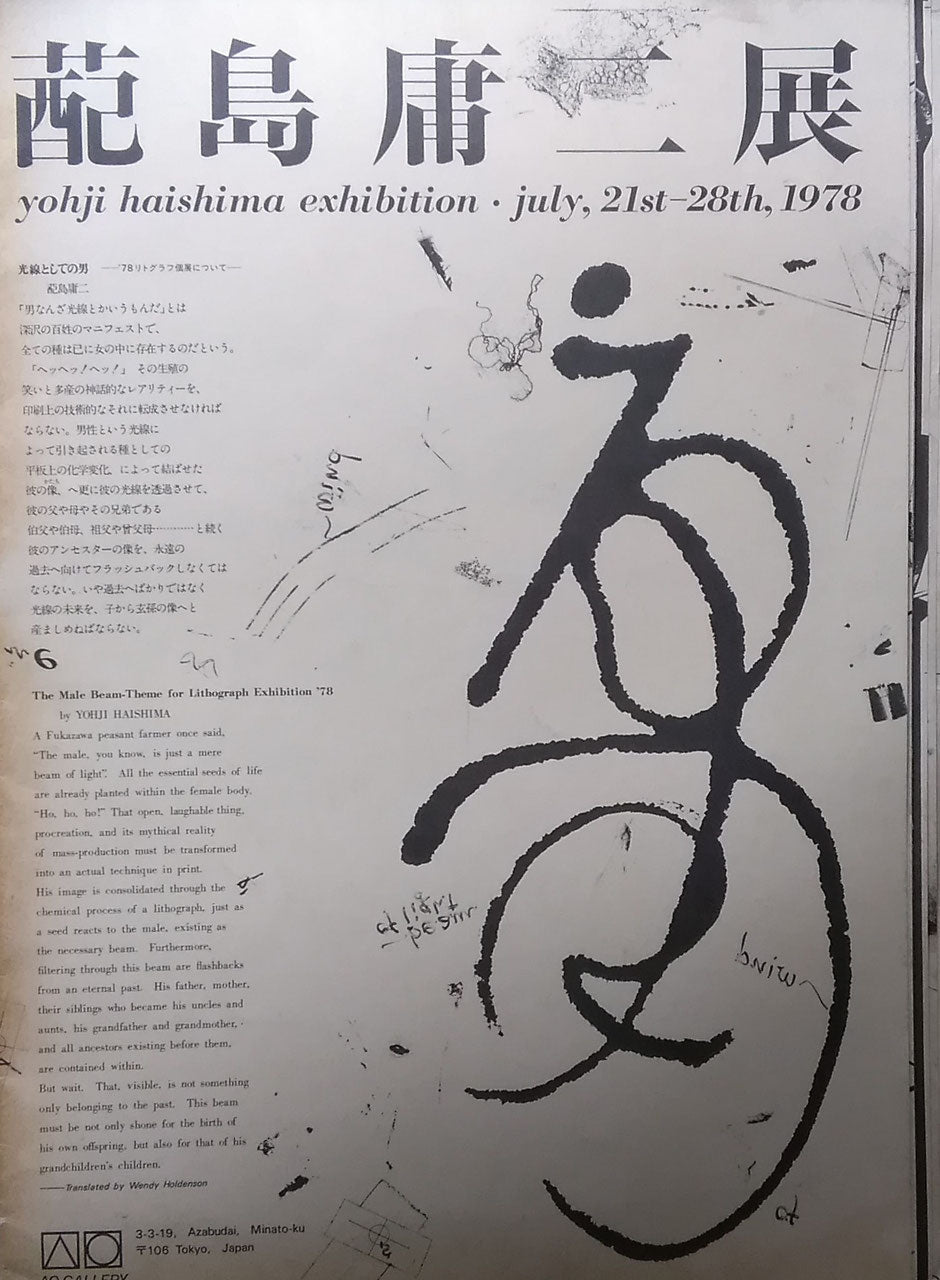 蓜島庸二展
yohji haishima exhibition · july, 21st–28th, 1978
光線としての男 ──'78リトグラフ個展について──
蓜島庸二
「男なんざ光線とかいうもんだ」とは
深沢の百姓のマニフェストで、
全ての種は已に女の中に存在するのだという。
「ヘッヘッ！ヘッ！」 その生殖の
笑いと多産の神話的なレアリティーを、
印刷上の技術的なそれに転成させなければ
ならない。男性という光線に
よって引き起される種としての
平板上の化学変化、によって結ばせた
彼の像、へ更に彼の光線を透過させて、
彼の父や母やその兄弟である
伯父や伯母、祖父や曾父母…………と続く
彼のアンセスターの像を、永遠の
過去へ向けてフラッシュバックしなくては
ならない。いや過去へばかりではなく
光線の未来を、子から玄孫の像へと
産ましめねばならない。
The Male Beam-Theme for Lithograph Exhibition '78
by YOHJI HAISHIMA
A Fukazawa peasant farmer once said,
“The male, you know, is just a mere
beam of light”. All the essential seeds of life
are already planted within the female body.
“Ho, ho, ho!” That open, laughable thing,
procreation, and its mythical reality
of mass-production must be transformed
into an actual technique in print.
His image is consolidated through the
chemical process of a lithograph, just as
a seed reacts to the male, existing as
the necessary beam. Furthermore,
filtering through this beam are flashbacks
from an eternal past. His father, mother,
their siblings who became his uncles and
aunts, his grandfather and grandmother,
and all ancestors existing before them,
are contained within.
But wait. That, visible, is not something
only belonging to the past. This beam
must be not only shone for the birth of
his own offspring, but also for that of his
grandchildren's children.
──Translated by Wendy Holdenson
3-3-19, Azabudai, Minato-ku
〒106 Tokyo, Japan
AO GALLERY